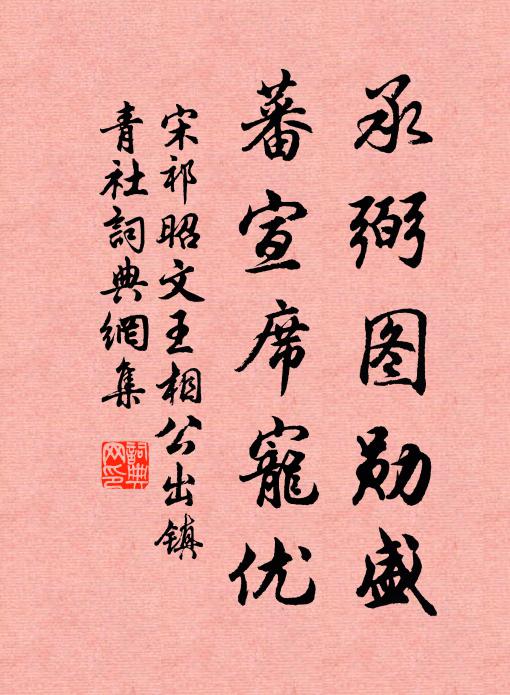 承弼图勋盛
蕃宣席寵优
宋祁昭文王相公出镇
青社詞典網集
詞典网印